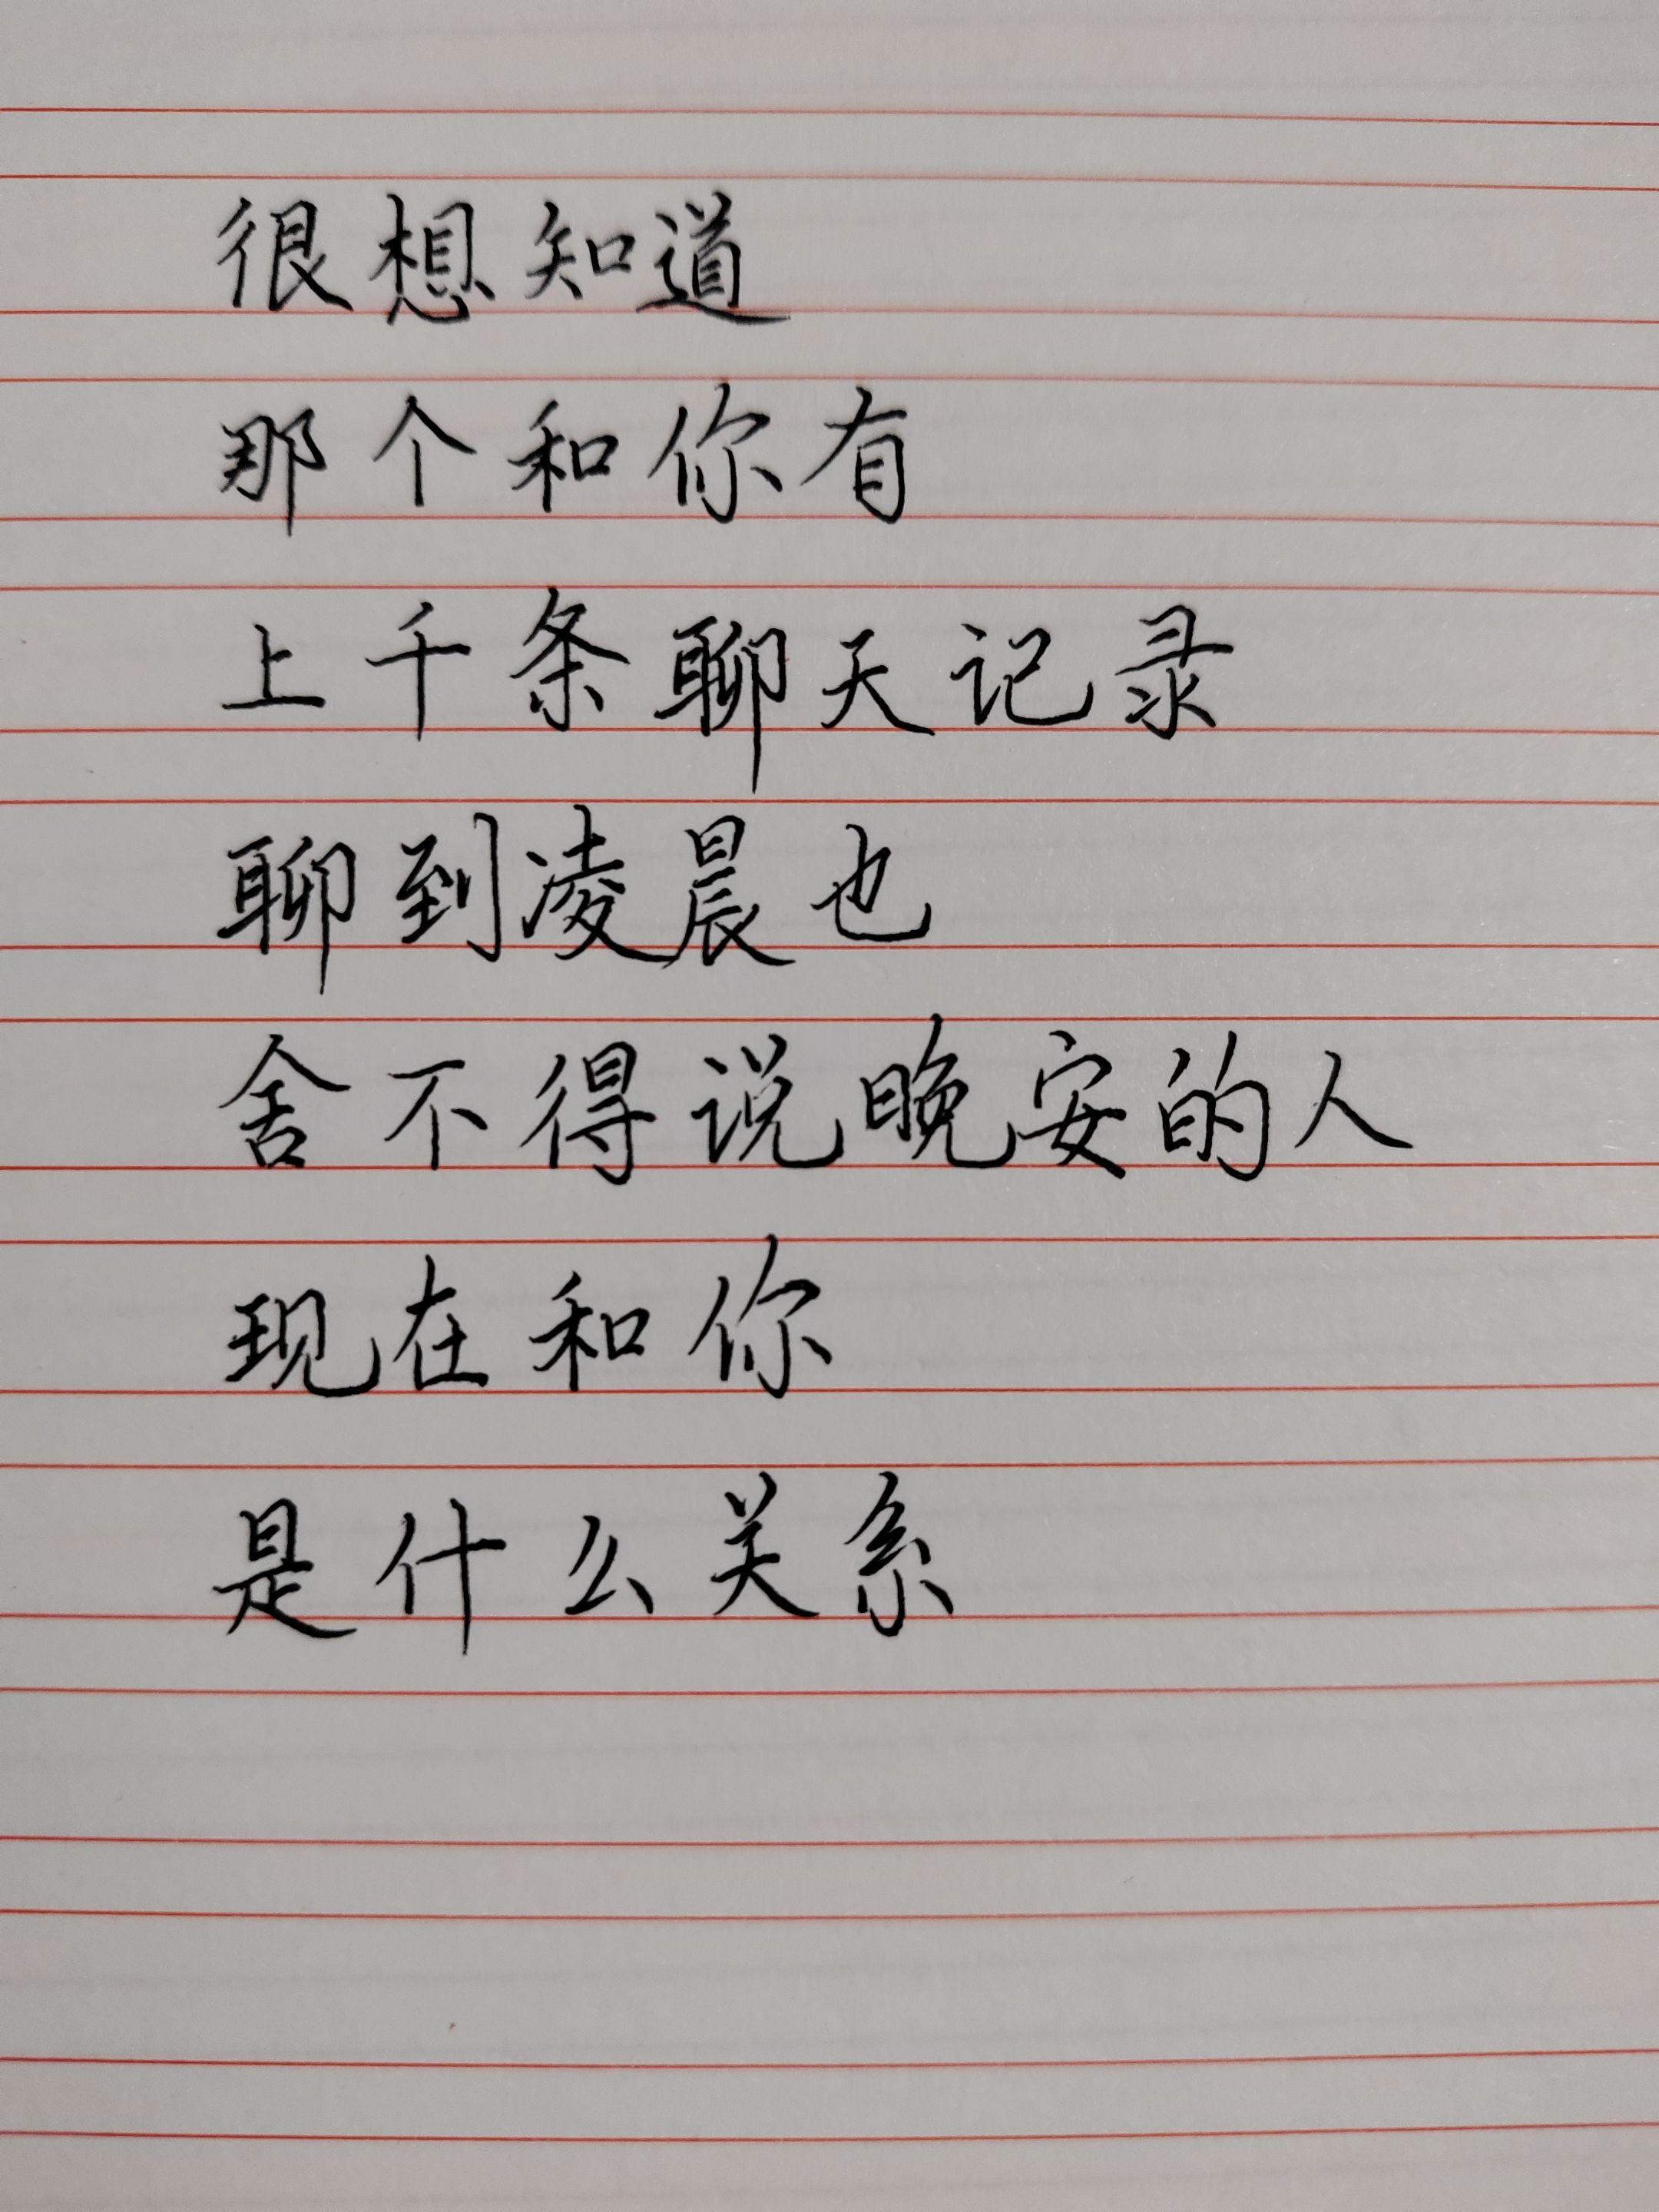 很想知道
那个和你有
上千条聊天记录
聊到凌晨也
舍不得说晚安的人
现在和你
是什么关系